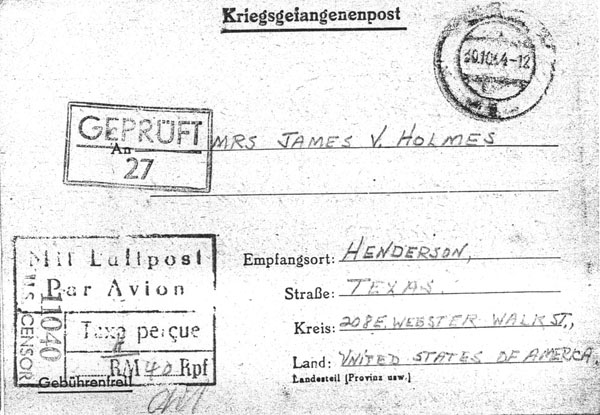 Kriegsgefangenenpost
30.10.44-12
GEPRÜFT
27
An MRS JAMES V. HOLMES
Mit Luftpost
Par Avion
Taxe perçue
RM 40 Rpf
U.S. CENSOR
11040
Gebührenfrei!
Empfangsort: HENDERSON,
Straße: TEXAS.
Kreis: 208 E. WEBSTER WALK ST.,
Land: UNITED STATES OF AMERICA,
Landesteil (Provinz usw.)